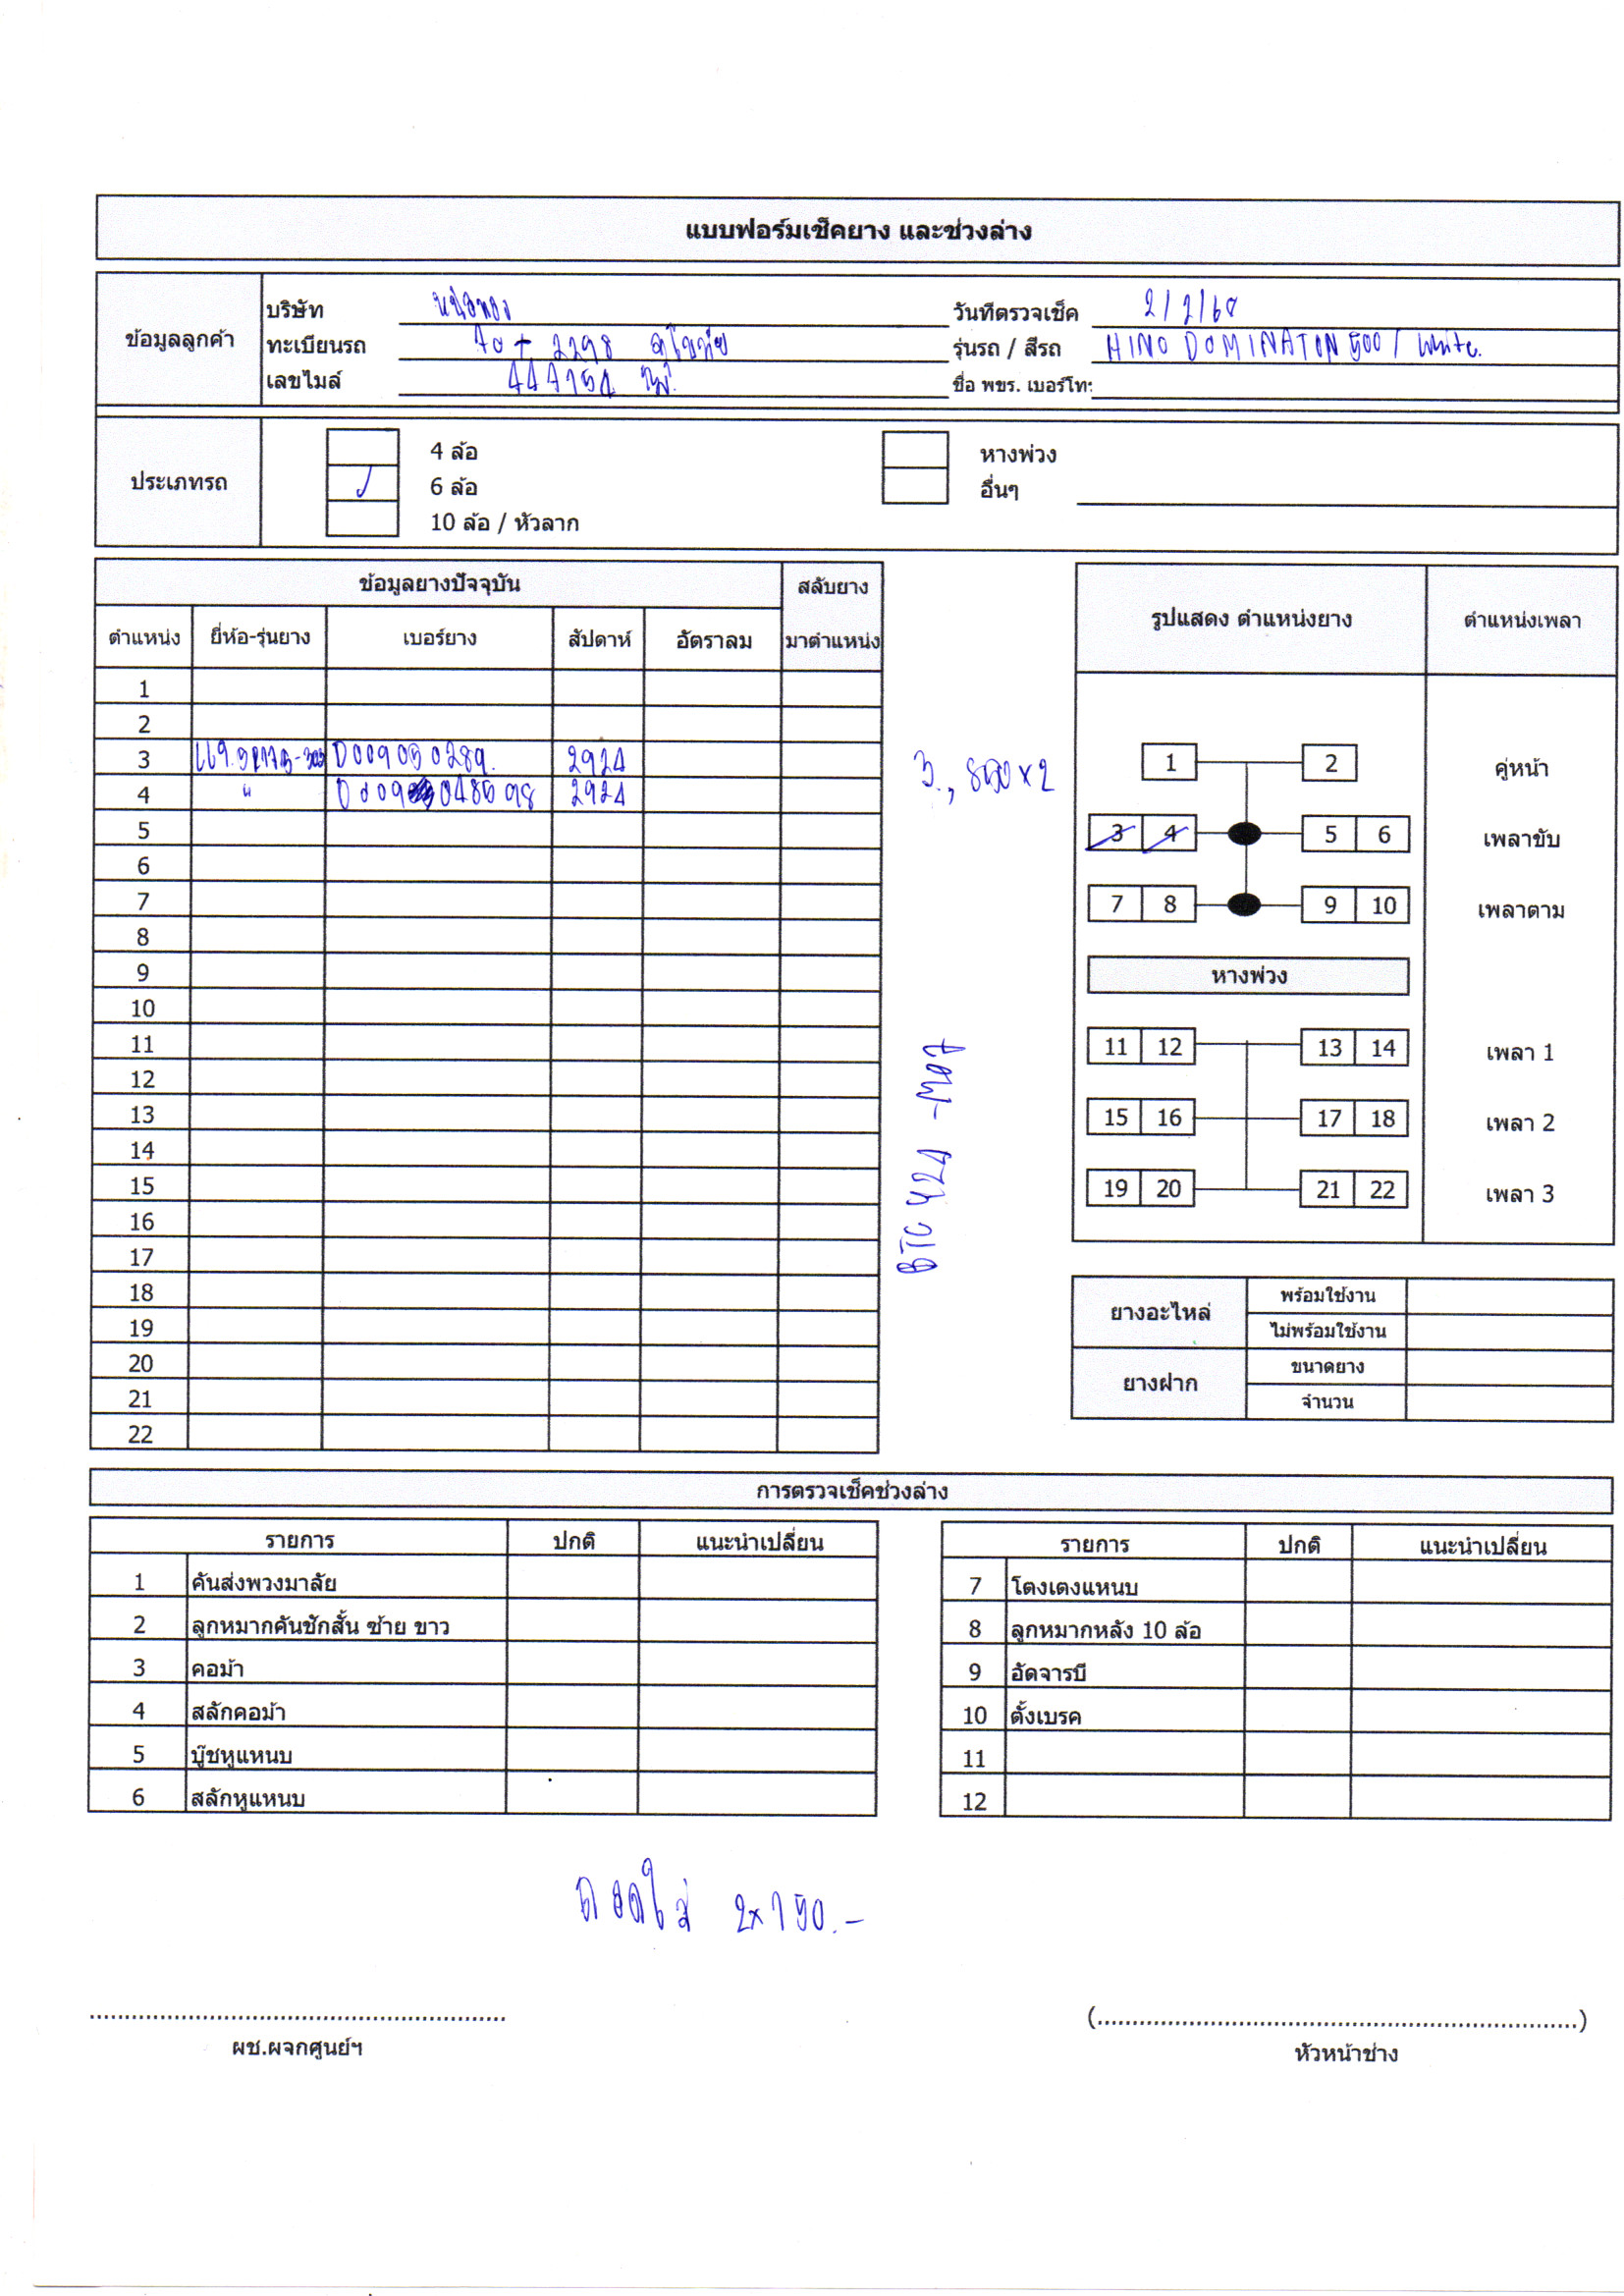 แบบฟอร์มเช็คยาง และช่วงล่าง
ข้อมูลลูกค้า
บริษัท หน่อทอง วันที่ตรวจเช็ค 2/2/68
ทะเบียนรถ 70-2298 สุโขทัย รุ่นรถ / สีรถ HINO DOMINATOR 500 / White.
เลขไมล์ 447754 ชื่อ พขร. เบอร์โทร
ประเภทรถ
4 ล้อ หางพ่วง
6 ล้อ อื่นๆ
10 ล้อ / หัวลาก
ข้อมูลยางปัจจุบัน สลับยาง
ตำแหน่ง ยี่ห้อ-รุ่นยาง เบอร์ยาง สัปดาห์ อัตราลม มาตำแหน่ง
1
2
3 D009050289. 2924
4 " D009048598 2924
5
6
7
8
9
10
11
12
13
14
15
16
17
18
19
20
21
22
3,800x2
รูปแสดง ตำแหน่งยาง ตำแหน่งเพลา
1 2 คู่หน้า
3 4 5 6 เพลาขับ
7 8 9 10 เพลาตาม
หางพ่วง
11 12 13 14 เพลา 1
15 16 17 18 เพลา 2
19 20 21 22 เพลา 3
ยางอะไหล่ พร้อมใช้งาน
ไม่พร้อมใช้งาน
ยางฝาก ขนาดยาง
จำนวน
การตรวจเช็คช่วงล่าง
รายการ ปกติ แนะนำเปลี่ยน
1 คันส่งพวงมาลัย
2 ลูกหมากคันชักสั้น ซ้าย ขาว
3 คอม้า
4 สลักคอม้า
5 บู๊ชหูแหนบ
6 สลักหูแหนบ
รายการ ปกติ แนะนำเปลี่ยน
7 โตงเตงแหนบ
8 ลูกหมากหลัง 10 ล้อ
9 อัดจารบี
10 ตั้งเบรค
11
12
ถอดใส่ 2x150.-
ผช.ผจกศูนย์ฯ
(                    )
หัวหน้าช่าง